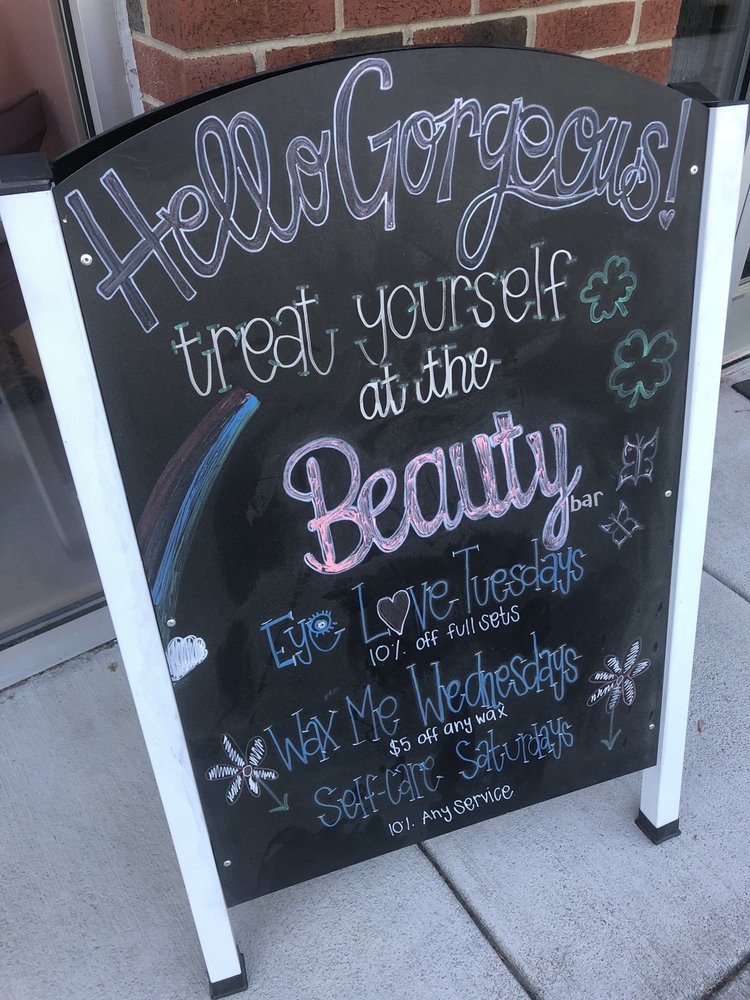 Hello Gorgeous!
treat yourself
at the
Beauty
bar
Eye Love Tuesdays
10% off full sets
Wax Me Wednesdays
$5 off any wax
Self-Care Saturdays
10% Any Service